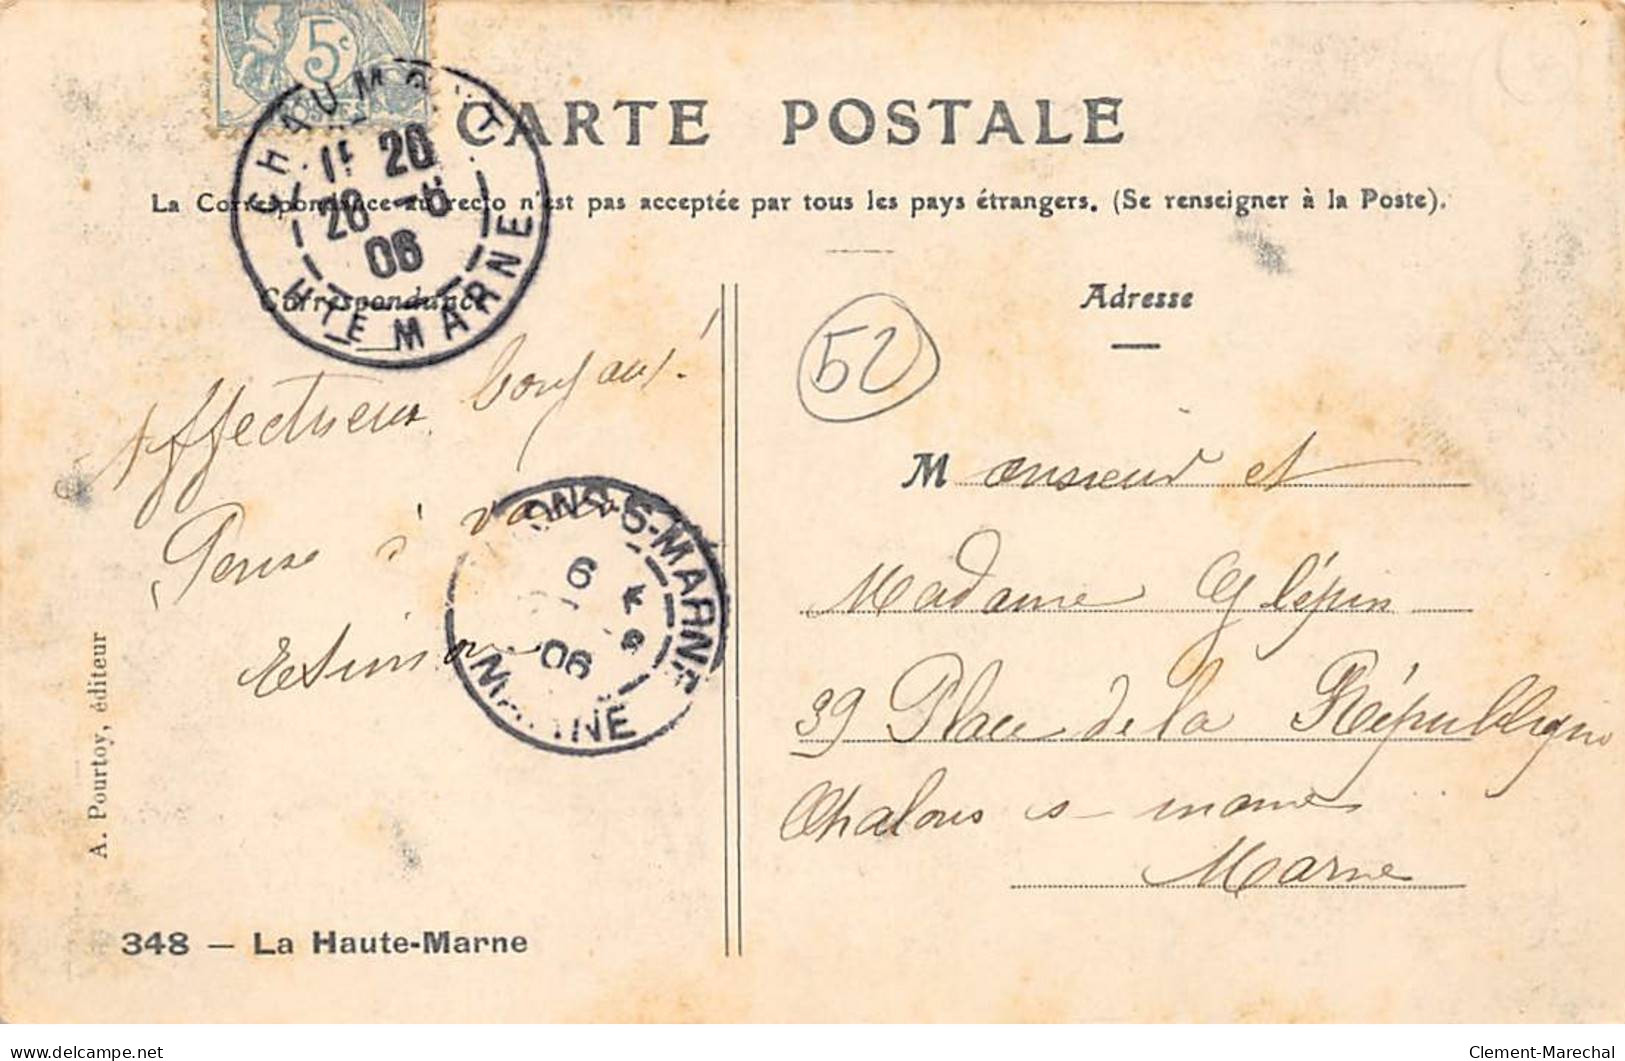 5c
CHAUMONT
20
06
HTE MARNE
CARTE POSTALE
La Correspondance au recto n'est pas acceptée par tous les pays étrangers. (Se renseigner à la Poste).
Correspondance
Adresse
52
Affectueux
Pense à vous
M onsieur et
Madame
39 Place de la République
Chalons s- marne
Marne
ONS-S-MARNE
6
06
MARNE
A. Pourtoy, éditeur
348 — La Haute-Marne
Clement-Marechal